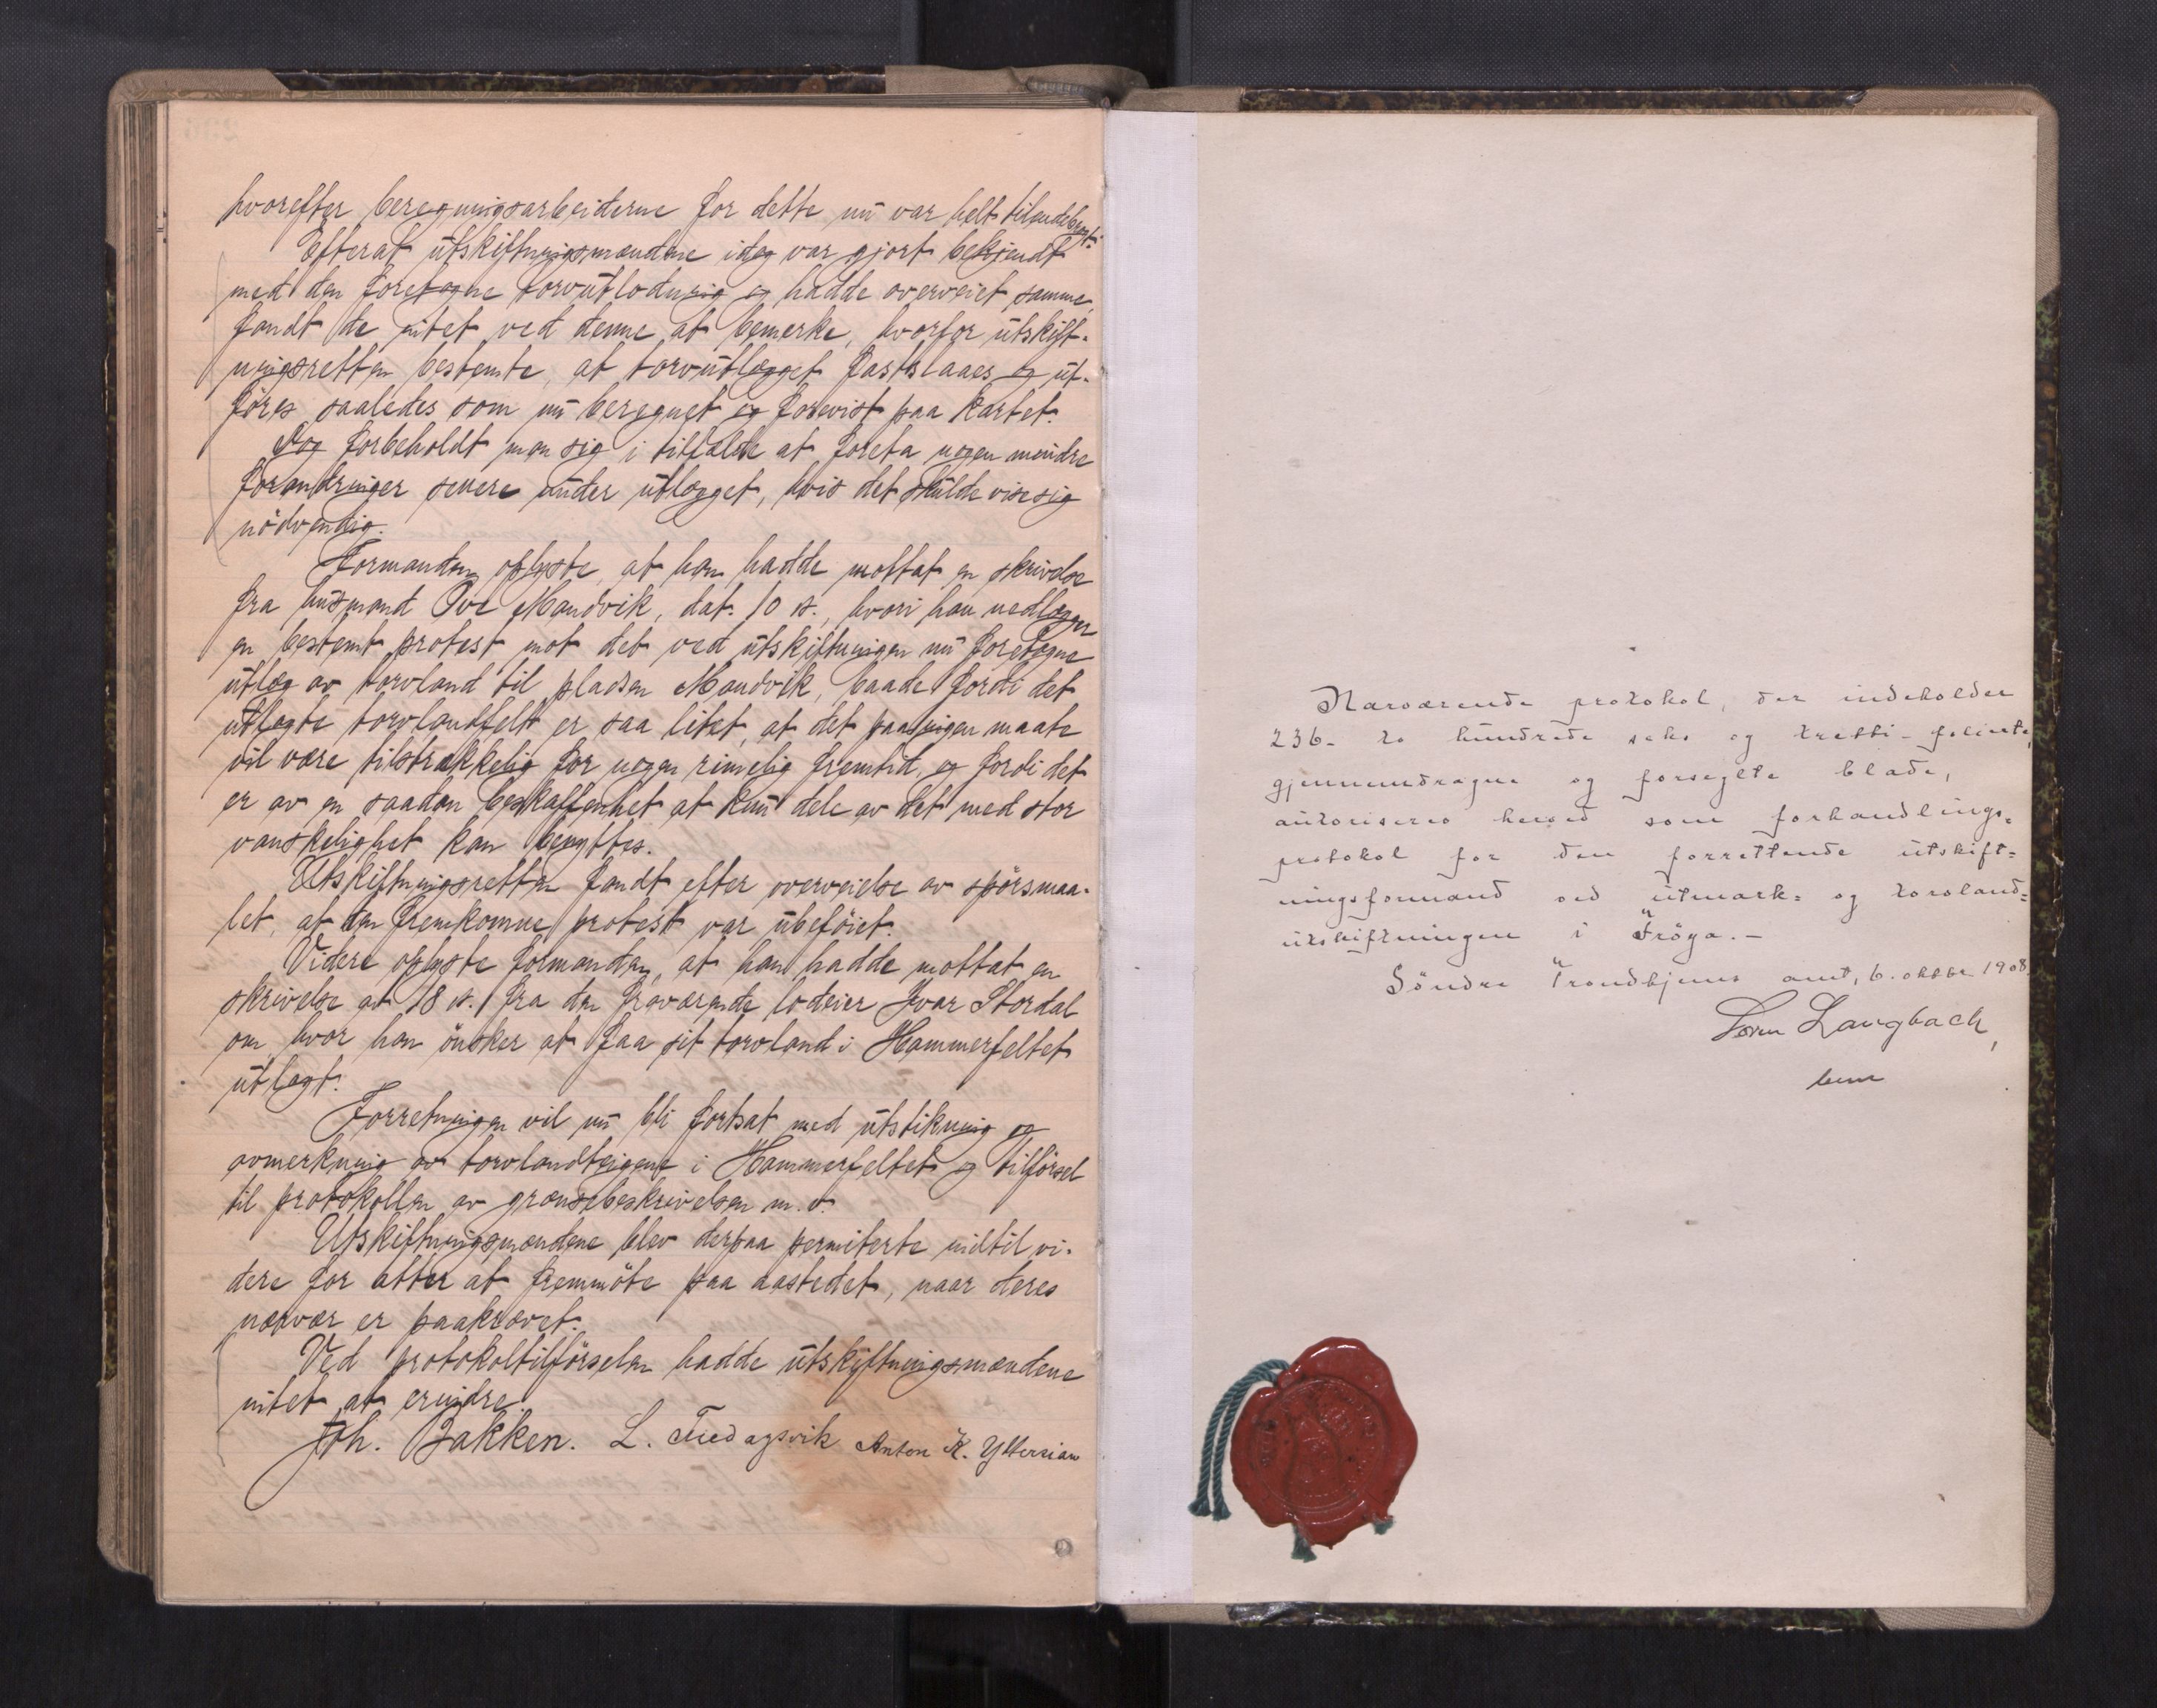 hvorefter beregningsarbeiderne for dette nu var helt tilendebragt.
Efterat utskiftningsmændene idag var gjort bekjendt
med den foretagne torvutlodning og hadde overveiet samme,
fandt de intet ved denne at bemerke, hvorfor utskift-
ningsretten bestemte, at torvutlægget fastslaaes og ut-
föres saaledes som nu beregnet og forevist paa kartet.
Dog forbeholdt man sig i tilfælde at foreta nogen mindre
forandringer senere under utlægget, hvis det skulde vise sig
nödvendig.
Formanden oplyste, at han hadde mottat en skrivelse
fra husmand Ove Mandvik, dat. 10 ds., hvori han nedlægger
en bestemt protest mot det ved utskiftningen nu foretagne
utlæg av torvland til pladsen Mandvik, baade fordi det
utlagte torvlandfelt er saa litet, at det paa ingen maate
vil være tilstrækkelig for nogen rimelig fremtid, og fordi det
er av en saadan beskaffenhet at kun dele av det med stor
vanskelighet kan benyttes.
Utskiftningsretten fandt efter overveielse av spörsmaa-
let, at den fremkomne protest var ubeföiet.
Videre oplyste formanden, at han hadde mottat en
skrivelse av 18 ds. fra den fraværende lodeier Ivar Stordal
om hvor han önsker at faa sit torvland i Hammerfeltet
utlagt.
Forretningen vil nu bli fortsat med utstikning og
avmerkning av torvlandteigene i Hammerfeltet og tilförsel
til protokollen av grænsebeskrivelsen m.v.
Utskiftningsmændene blev derpaa permiterte indtil vi-
dere for atter at fremmöte paa aastedet, naar deres
nærvær er paakrævet.
Ved protokoltilförselen hadde utskiftningsmændene
intet at erindre.
Joh. Bakken. L. Fredagsvik Anton K. Ytterian
Nærværende protokol, der indeholder
236 - to hundrede seks og tretti - folierte,
gjennemdragne og forseglte blade,
autoriseres herved som forhandlings-
protokol for den forrettende utskift-
ningsformand ved utmark- og torvland-
utskiftningen i Fröya. -
Söndre Trondhjems amt, 6. oktbr 1908.
Lorn Langbach,
bem